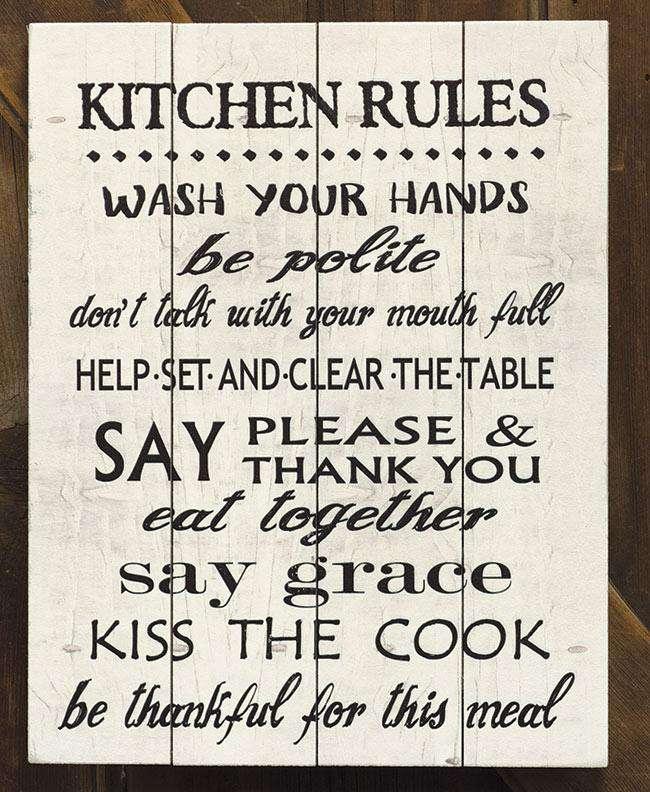 KITCHEN RULES
WASH YOUR HANDS
be polite
don't talk with your mouth full
HELP·SET·AND·CLEAR·THE·TABLE
SAY PLEASE &
THANK YOU
eat together
say grace
KISS THE COOK
be thankful for this meal